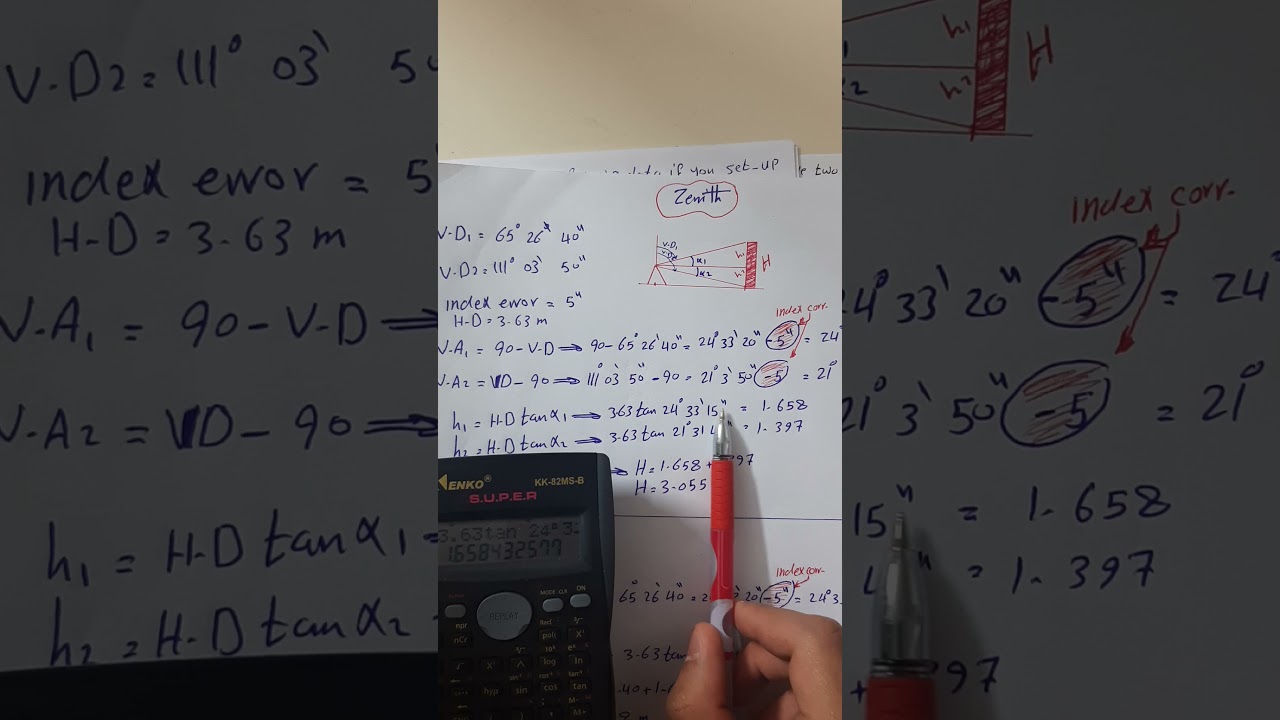 data if you set-up
two
Zenith
V.D₁ = 65° 26' 40"
V.D₂ = 111° 03' 50"
index error = 5"
H-D = 3.63 m
V.D₁
α1
α2
h₁
h²
H
index corr.
V-A₁ = 90-V-D ⇒ 90-65° 26' 40" = 24° 33' 20" -5" = 24°
V-A2 = VD-90 ⇒ 111° 03' 50" -90 = 21° 3' 50" -5 = 21°
h₁ = H-D tanα1 → 3.63 tan 24° 33' 15" = 1.658
h₂ = H-D tanα2 → 3.63 tan 21° 3' = 1.397
H = 1.658+ 97
H = 3.055
ENKO®
KK-82MS-B
S.U.P.E.R
3.63tan 24°3
1.658432577
REPLAY
MODE CLR
ON
npr
nCr
Red.
poli
X³
X²
10ˣ
eˣ
log
ln
hyp
sin
cos
tan
M-
M+
index corr.
65° 26' 40" = 20" -5" = 24° 3
3.63 tan
V.D2 = 111° 03' 50
index error = 5
H-D = 3.63 m
V-A₁ = 90-V-D ⇒
V-A2 = VD-90
h₁ = H-D tanα1
h₂ = H-D tanα2
h₁
h²
H
index corr.
24° 33' 20" -5" = 24
21° 3' 50" -5 = 21°
15" = 1.658
= 1.397
97